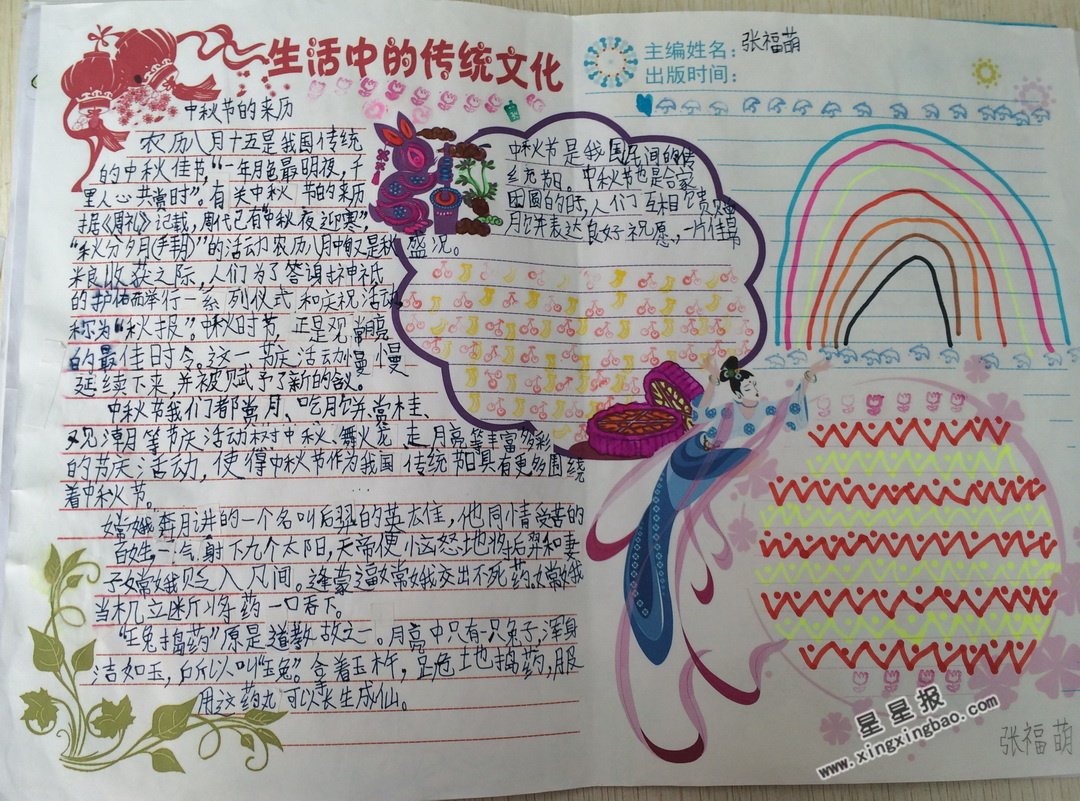 生活中的传统文化
主编姓名：张福萌
出版时间：
中秋节的来历
农历八月十五是我国传统
的中秋佳节，"一年月色最明夜，千
里人心共赏时"。有关中秋节的来历
据《周礼》记载，周代已有"中秋夜迎寒"，
"秋分夕月"的活动农历八月中旬又是秋
粮收获之际，人们为了答谢神祇
的护佑而举行一系列仪式和庆祝活动
称为"秋报"。中秋时节，正是观常月亮
的最佳时令。这一节庆活动慢慢
延续下来，并被赋予了新的含义。
中秋节我们都赏月、吃月饼、赏桂、
观潮等节庆活动、舞火龙、走月亮等丰富多彩
的节庆活动，使得中秋节作为我国传统节日具有更多围绕
着中秋节。
嫦娥奔月讲的一个名叫后羿的英雄，他同情受苦的
百姓一气射下九个太阳，天帝便恼怒地将后羿和妻
子嫦娥贬入凡间。逢蒙逼嫦娥交出不死药，嫦娥
当机立断将药一口吞下。
"玉兔捣药"原是道教故之一。月亮中只有一只兔子，浑身
洁如玉，所以叫"玉兔"。拿着玉杵，跪地捣药，服
用这药丸可以长生成仙。
中秋节是我国民间的传
统节日。中秋节也是合家
团圆的时，人们互相馈赠
月饼表达良好祝愿，一片佳节
盛况。
星星报
www.xingxingbao.com
张福萌